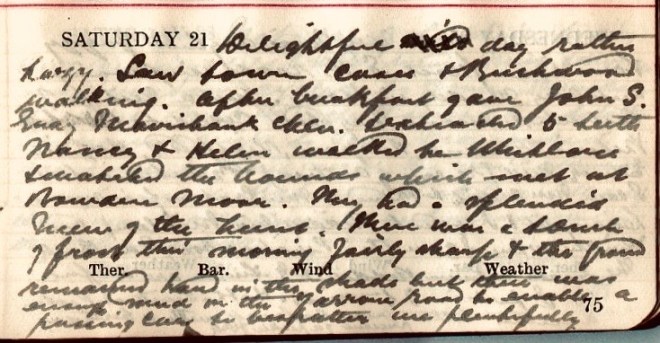 SATURDAY 21 Delightful day rather
hazy. Saw town cows & Bushwood
walking. After breakfast gave John S.
Nancy & Helen walked to
the hounds which met at
Bowden Moor. They had a splendid
view of the hunt. There was a touch
of frost this morning fairly sharp & the ground
Ther. Bar. Wind Weather
remained hard in the shade but there was
enough mud on the Yarrow road to enable a
passing car to bespatter me plentifully
75